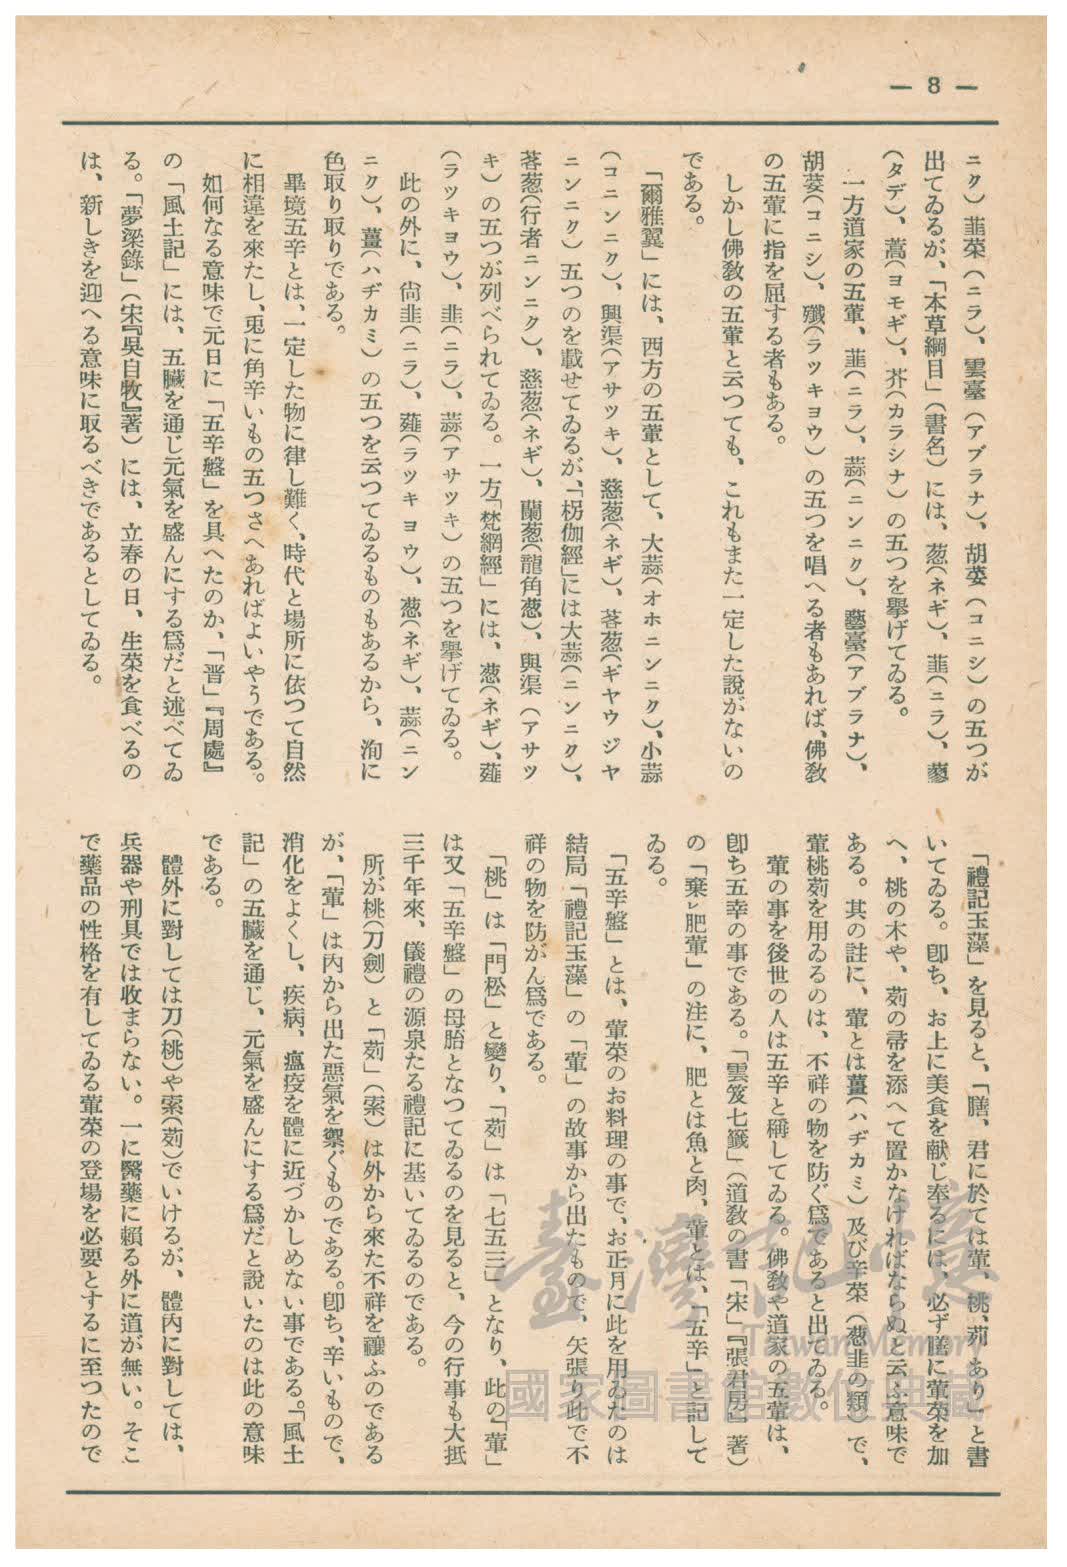 — 8 —
ニク）韭榮（ニラ）、雲臺（アブラナ）、胡荽（コニシ）の五つが
出てゐるが、「本草綱目」（書名）には、葱（ネギ）、韭（ニラ）、蓼
（タデ）、蒿（ヨモギ）、芥（カラシナ）の五つを擧げてゐる。
一方道家の五葷、韭（ニラ）、蒜（ニンニク）、藝臺（アブラナ）、
胡荽（コニシ）、殲（ラツキヨウ）の五つを唱へる者もあれば、佛敎
の五葷に指を屈する者もある。
しかし佛敎の五葷と云つても、これもまた一定した說がないの
である。
「爾雅翼」には、西方の五葷として、大蒜（オホニンニク）、小蒜
（コニンニク）、興渠（アサツキ）、慈葱（ネギ）、茖葱（ギヤウジヤ
ニンニク）五つのを載せてゐるが、「枴伽經」には大蒜（ニンニク）、
茖葱（行者ニンニク）、慈葱（ネギ）、蘭葱（龍角葱）、與渠（アサツ
キ）の五つが列べられてゐる。一方「梵網經」には、葱（ネギ）、薤
（ラツキヨウ）、韭（ニラ）、蒜（アサツキ）の五つを擧げてゐる。
此の外に、尙韭（ニラ）、薤（ラツキヨウ）、葱（ネギ）、蒜（ニン
ニク）、薑（ハヂカミ）の五つを云つてゐるものもあるから、洵に
色取り取りである。
畢境五辛とは、一定した物に律し難く、時代と場所に依つて自然
に相違を來たし、兎に角辛いもの五つさへあればよいやうである。
如何なる意味で元日に「五辛盤」を具へたのか、「晋」『周處』
の「風土記」には、五臟を通じ元氣を盛んにする爲だと述べてゐ
る。「夢梁錄」（宋『吳自牧』著）には、立春の日、生榮を食べるの
は、新しきを迎へる意味に取るべきであるとしてゐる。
「禮記玉藻」を見ると、「膳、君に於ては葷、桃、茢あり」と書
いてゐる。卽ち、お上に美食を献じ奉るには、必ず膳に葷榮を加
へ、桃の木や、茢の帚を添へて置かなければならぬと云ふ意味で
ある。其の註に、葷とは薑（ハヂカミ）及び辛榮（葱韭の類）で、
葷桃茢を用ゐるのは、不祥の物を防ぐ爲であると出てゐる。
葷の事を後世の人は五辛と稱してゐる。佛敎や道家の五葷は、
卽ち五幸の事である。「雲笈七籤」（道敎の書「宋」『張君房』著）
の「棄と肥葷」の注に、肥とは魚と肉、葷とは、「五辛」と記して
ゐる。
「五辛盤」とは、葷榮のお料理の事で、お正月に此を用ゐたのは
結局「禮記玉藻」の「葷」の故事から出たもので、矢張り此で不
祥の物を防がん爲である。
「桃」は「門松」と變り、「茢」は「七五三」となり、此の「葷」
は又「五辛盤」の母胎となつてゐるのを見ると、今の行事も大抵
三千年來、儀禮の源泉たる禮記に基いてゐるのである。
所が桃（刀劍）と「茢」（索）は外から來た不祥を禳ふのである
が、「葷」は內から出た惡氣を禦ぐものである。卽ち、辛いもので、
消化をよくし、疾病、瘟疫を體に近づかしめない事である。「風土
記」の五臟を通じ、元氣を盛んにする爲だと說いたのは此の意味
である。
體外に對しては刀（桃）や索（茢）でいけるが、體內に對しては、
兵器や刑具では收まらない。一に醫藥に賴る外に道が無い。そこ
で藥品の性格を有してゐる葷榮の登場を必要とするに至つたので
臺灣記憶
Taiwan Memory
國家圖書館數位典藏